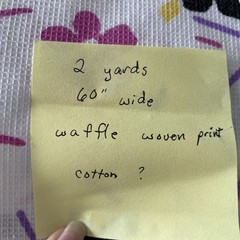 2 yards
60" wide
waffle woven print
cotton ?